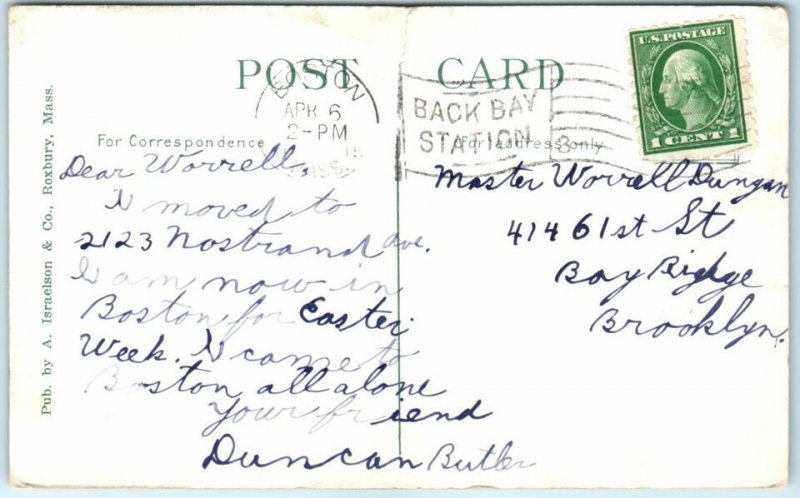 POST CARD
U.S. POSTAGE
1 CENT 1
BOSTON
APR 6
2-PM
MASS.
BACK BAY
STATION
For Correspondence
For address only
Pub. by A. Israelson & Co., Roxbury, Mass.
Dear Worrell,
I moved to
2123 Nostrand Ave.
I am now in
Boston for Easter
Week. I came to
Boston all alone
Your friend
Duncan Butler
Master Worrell Dungan
414 61st St
Bay Ridge
Brooklyn.